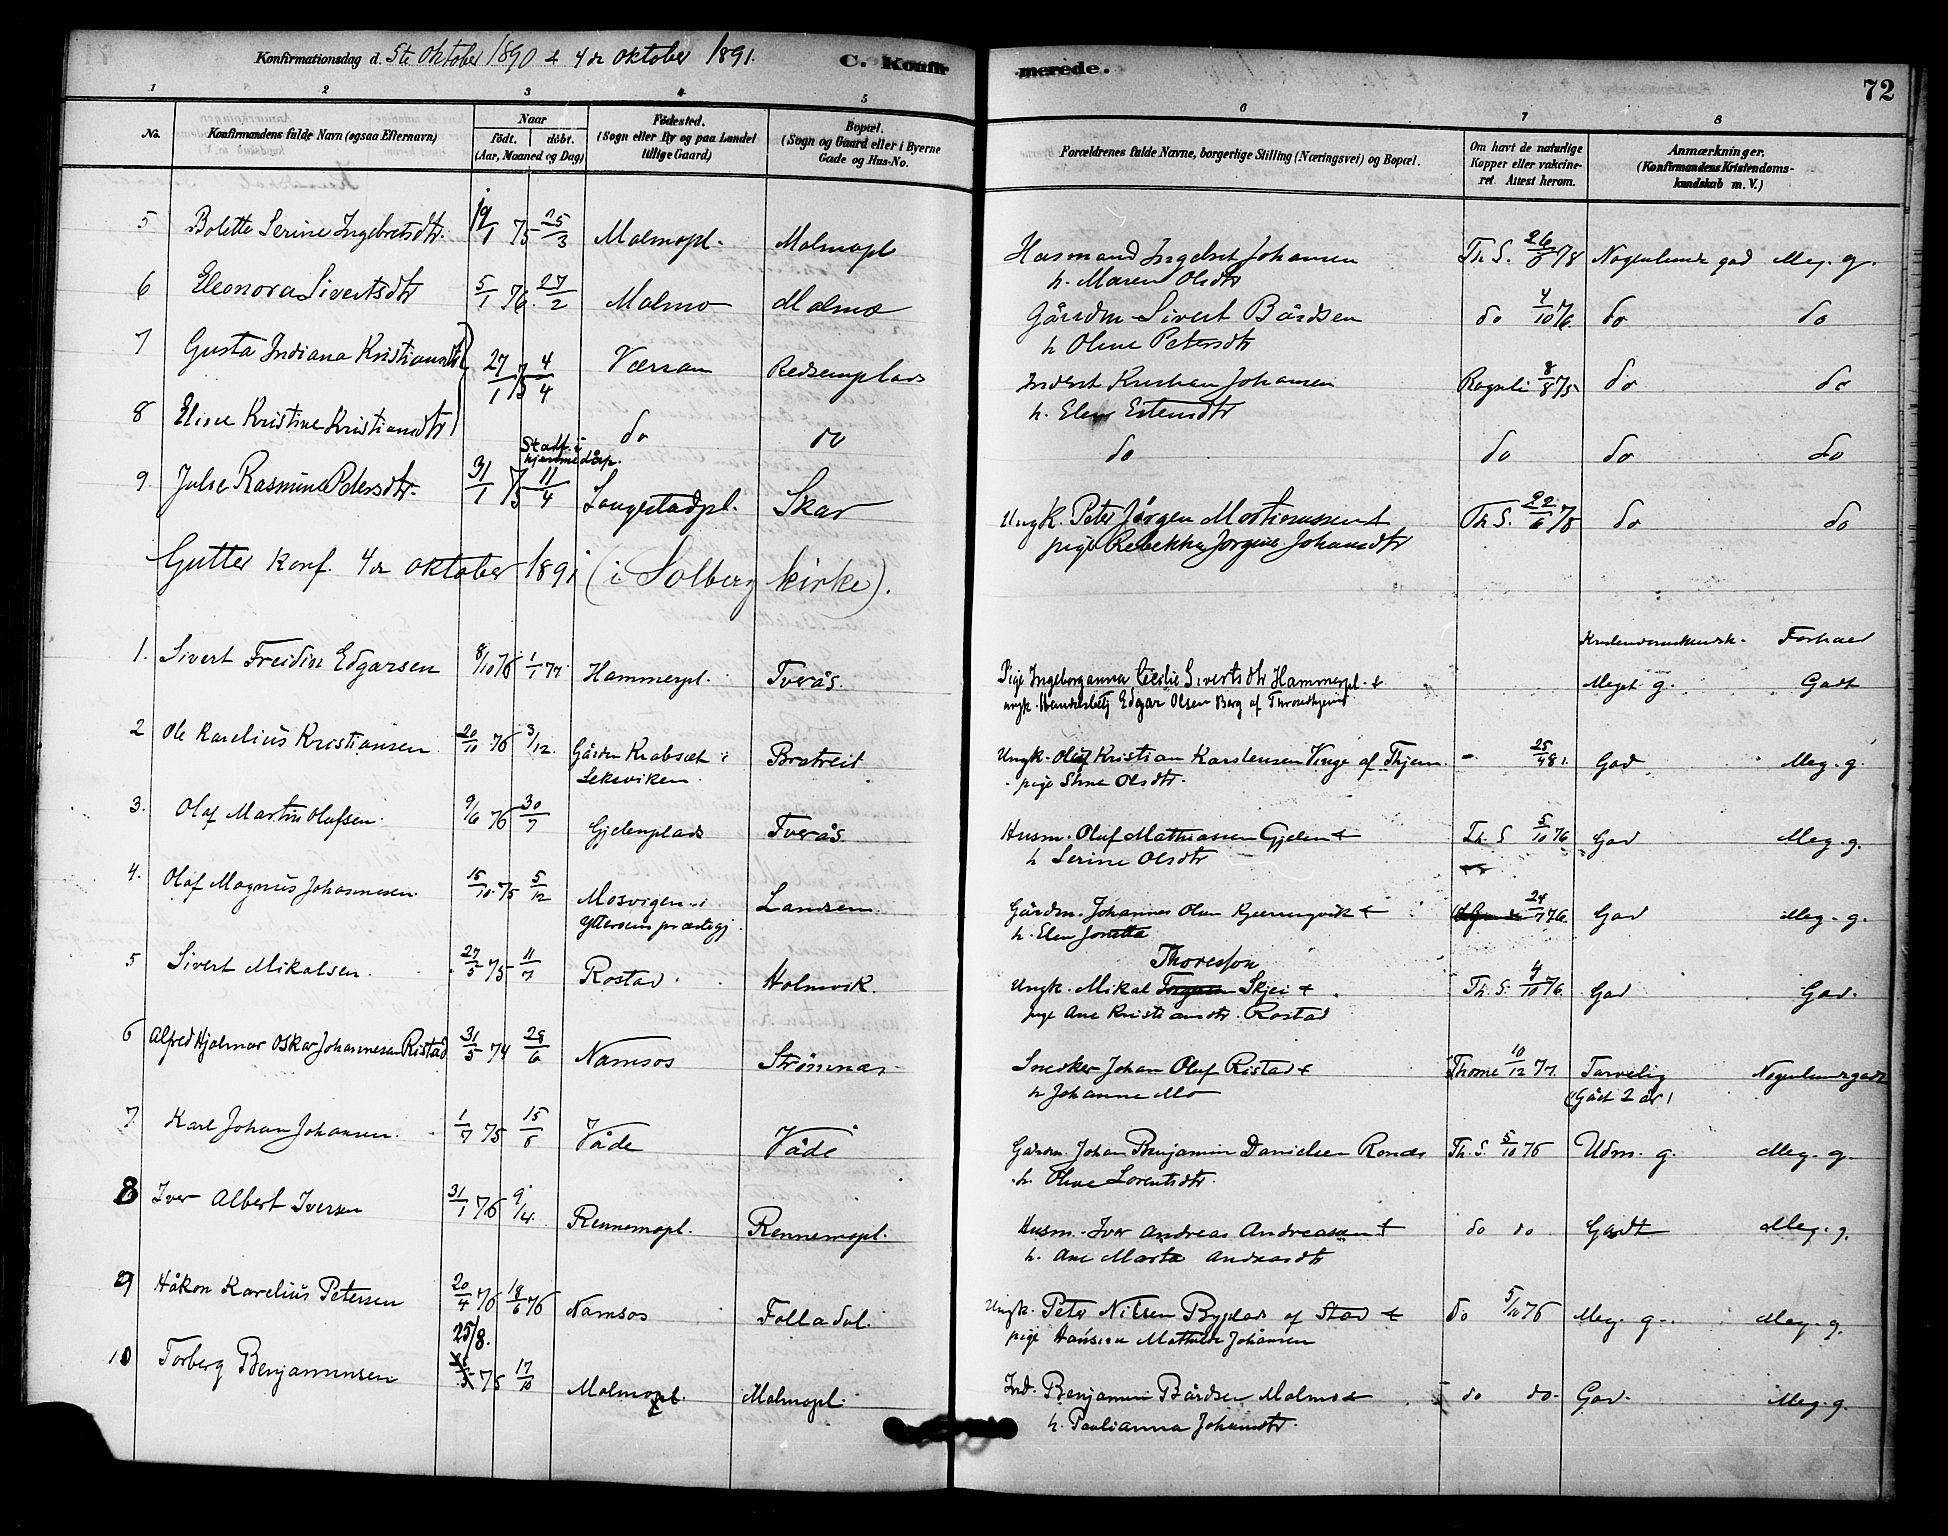 Konfirmationsdag d. 5te Oktober 1890 & 4de Oktober 1891. C. Konfirmerede. 72
1 2 3 4 5 6 7 8
No. Konfirmandens fulde Navn (ogsaa Efternavn) Naar født. døbt. (Aar, Maaned og Dag) Fødested. (Sogn eller By og paa Landet tillige Gaard) Bopæl. (Sogn og Gaard eller i Byerne Gade og Hus-No. Forældrenes fulde Navne, borgerlige Stilling (Næringsvei) og Bopæl. Om havt de naturlige Kopper eller vakcineret. Attest herom. Anmærkninger. (Konfirmandens Kristendomskundskab m. V.)
5 Bolette Serine Ingebretsdtr. 19/1 75 25/3 Malmopl. Malmopl Husmand Ingebret Johansen Th. S. 26/6 78 Nogenlunde god Meg. g.
h. Maren Olsdtr
6 Eleonora Sivertsdtr 5/1 76. 27/2 Malmo Malmo Gårdm Sivert Bårdsen do 4/10 76. do do
h Oline Petersdtr
7 Gusta Indiana Kristiansdtr 27/1 75 4/4 Værran Redsemplads Inderst Kristian Johansen Rognli 8/8 75 do do
h. Elen Estensdtr
8 Elise Kristine Kristiansdtr do do do do do do
9 Julie Rasmine Petersdtr. 31/1 75 Stadf. i hjemmedåp. 11/4 Langstadpl. Skar Ungk. Peter Jørgen Mortinussen & Th. S. 22/6 78 do do
pige Rebekka Jørgine Johansdtr
Gutter konf. 4de oktober 1891 (i Solberg kirke).
Kristendomskundsk. Forhold
1. Sivert Freidin Edgarsen 8/10 76 1/1 77 Hammerpl. Tverås. Pige Ingeborganna Cecilie Sivertsdtr Hammerpl. & Meget g. Godt
ungk. Handelsbetj Edgar Olsen Berg af Throndhjem
2 Ole Karelius Kristiansen 20/10 76 3/12. Gården Krabsæt i Leksviken. Bratreit Ungk. Oluf Kristian Karstensen Vinge af Thjem - 25/4 81 God Meg. g.
pige Stine Olsdtr.
3. Olaf Martin Olufsen. 9/6 76 30/7 Gjelenplads Tverås. Husm. Oluf Mathiassen Gjelen & Th. S 5/10 76 God Meg. g.
h Serine Olsdtr
4. Olaf Magnus Johannesen. 15/10. 75 5/12 Mosvigen i Ytterøens præstegj. Landsem. Gårdm. Johannes Olsen Kjerringvik & 24/7 76. God Meg. g.
h. Elen Jonetta
5 Sivert Mikalsen. 27/5 75 11/7 Rostad. Holmvik. Ungk. Mikal Thoresson Skjei & Th. S. 4/10 76. God God.
pige Ane Kristiansdtr. Rostad
6 Alfred Hjalmar Oskar Johannesen Ristad 31/5 74 28/6 Namsos Strømnæs Snedker Johan Oluf Ristad & Thome 10/12 77. Tarvelig Nogenlunde godt
h Johanne Mo (Gået 2 år)
7. Karl Johan Johansen. 1/7 75 15/8 Våde Våde Gårdm. Johan Benjamin Danielsen Ronæs Th. S. 5/10 76 Udm. g. Meg. g.
h. Oline Lorentsdtr.
8 Iver Albert Iversen 31/1 76 9/4. Rennemopl. Rennemopl. Husm. Iver Andreas Andreassen & do do Godt Meg. g.
h. Ane Marta Andreasdtr
9 Håkon Karelius Petersen 20/4 76 18/6 76 Namsos Folladal. Ungk. Peter Nilsen Bygdås af Stod & do 5/10 76 Meg. g. Meg. g.
pige Hansine Mathilde Johansen
10 Torberg Benjaminsen 25/8. 75 17/10 Malmopl. Malmopl. Ind. Benjamin Bårdsen Malmo & do do. God. Meg. g.
h. Paulianna Johansdtr.